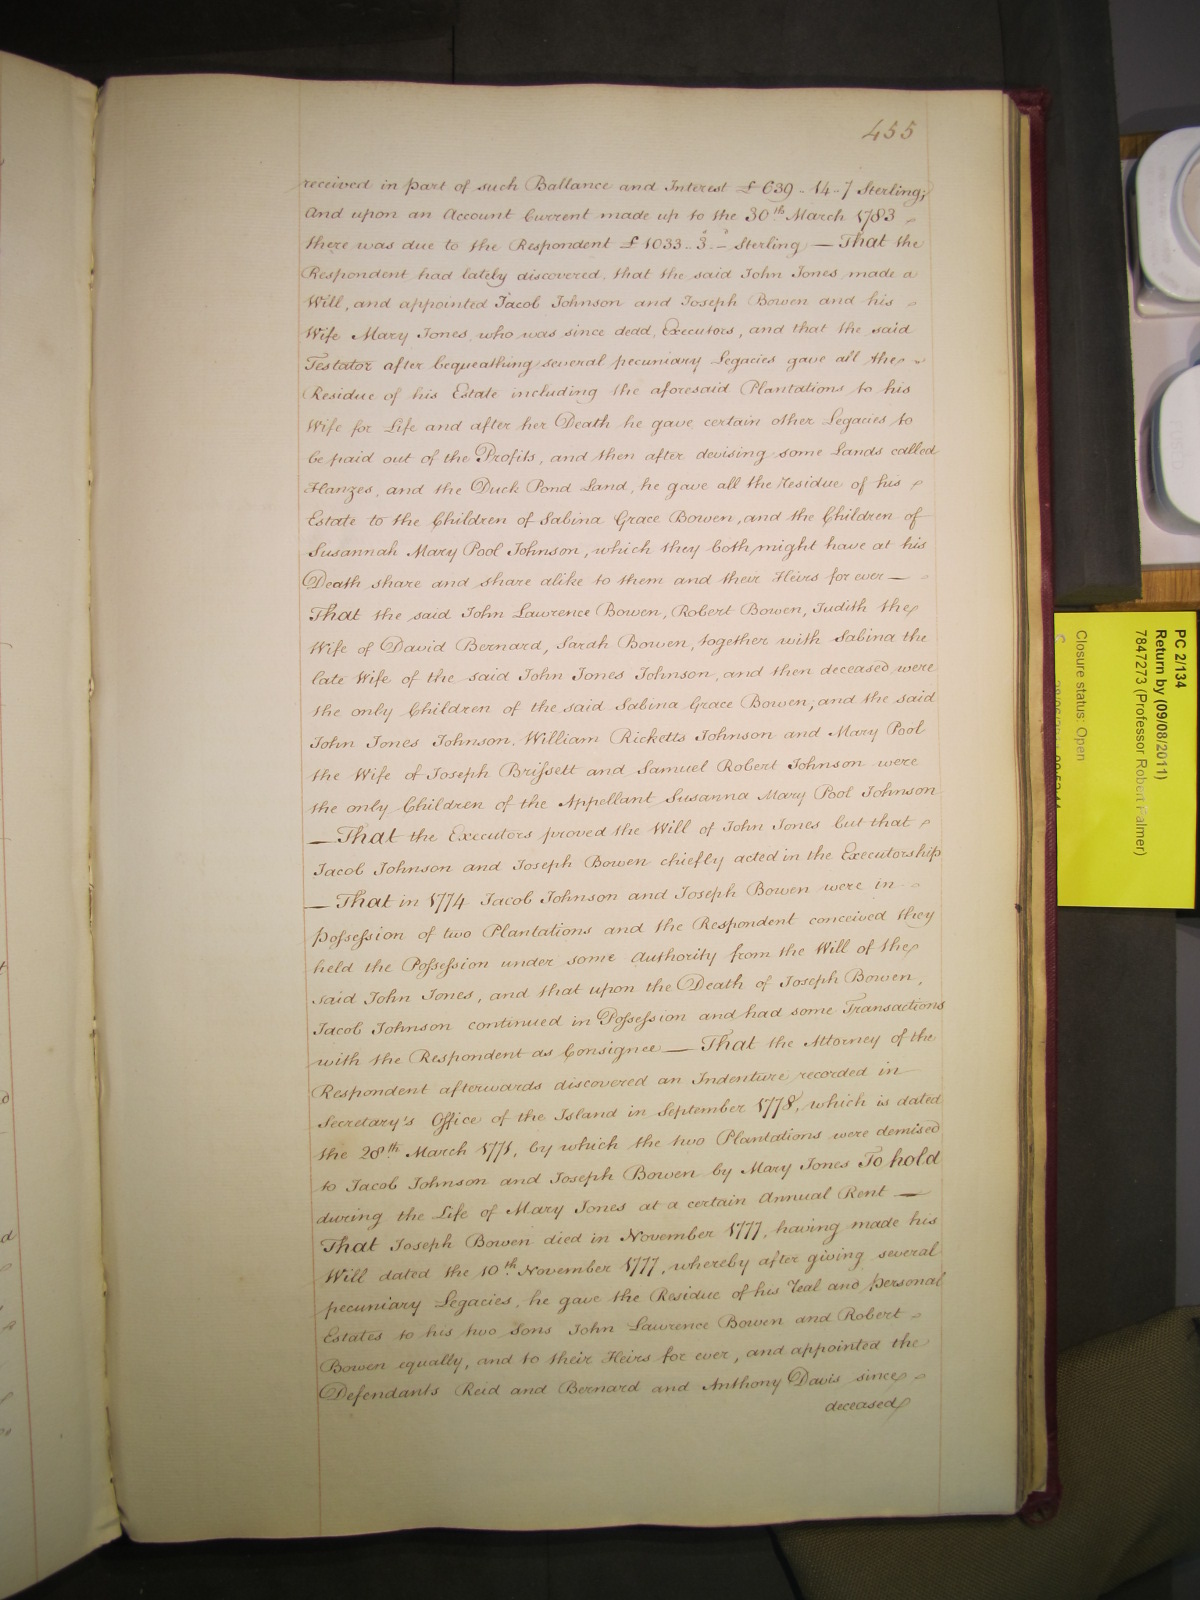 455
received in part of such Ballance and Interest £639..14..7 Sterling;
And upon an Account Current made up to the 30th March 1783
there was due to the Respondent £1033..3..– Sterling — That the
Respondent had lately discovered, that the said John Jones made a
Will, and appointed Jacob Johnson and Joseph Bowen and his
Wife Mary Jones, who was since dead, Executors, and that the said
Testator after bequeathing several pecuniary Legacies gave all the
Residue of his Estate including the aforesaid Plantations to his
Wife for Life and after her Death he gave certain other Legacies to
be paid out of the Profits, and then after devising some Lands called
Hanzes, and the Duck Pond Land, he gave all the residue of his
Estate to the Children of Sabina Grace Bowen, and the Children of
Susannah Mary Pool Johnson, which they both might have at his
Death share and share alike to them and their Heirs for ever —
That the said John Lawrence Bowen, Robert Bowen, Judith the
Wife of David Bernard, Sarah Bowen, together with Sabina the
late Wife of the said John Jones Johnson, and then deceased were
the only Children of the said Sabina Grace Bowen, and the said
John Jones Johnson, William Ricketts Johnson and Mary Pool
the Wife of Joseph Brissett and Samuel Robert Johnson were
the only Children of the Appellant Susanna Mary Pool Johnson
— That the Executors proved the Will of John Jones but that
Jacob Johnson and Joseph Bowen chiefly acted in the Executorship
— That in 1774 Jacob Johnson and Joseph Bowen were in
possession of two Plantations and the Respondent conceived they
held the Possession under some Authority from the Will of the
said John Jones, and that upon the Death of Joseph Bowen,
Jacob Johnson continued in Possession and had some Transactions
with the Respondent as Consignee — That the Attorney of the
Respondent afterwards discovered an Indenture recorded in
Secretary's Office of the Island in September 1778, which is dated
the 28th March 1771, by which the two Plantations were demised
to Jacob Johnson and Joseph Bowen by Mary Jones To hold
during the Life of Mary Jones at a certain Annual Rent —
That Joseph Bowen died in November 1777, having made his
Will dated the 10th November 1777, whereby after giving several
pecuniary Legacies, he gave the Residue of his real and personal
Estates to his two Sons John Lawrence Bowen and Robert
Bowen equally, and to their Heirs for ever, and appointed the
Defendants Reid and Bernard and Anthony Davis since
deceased
PC 2/134
Return by (09/08/2011)
7847273 (Professor Robert Palmer)
Closure status: Open